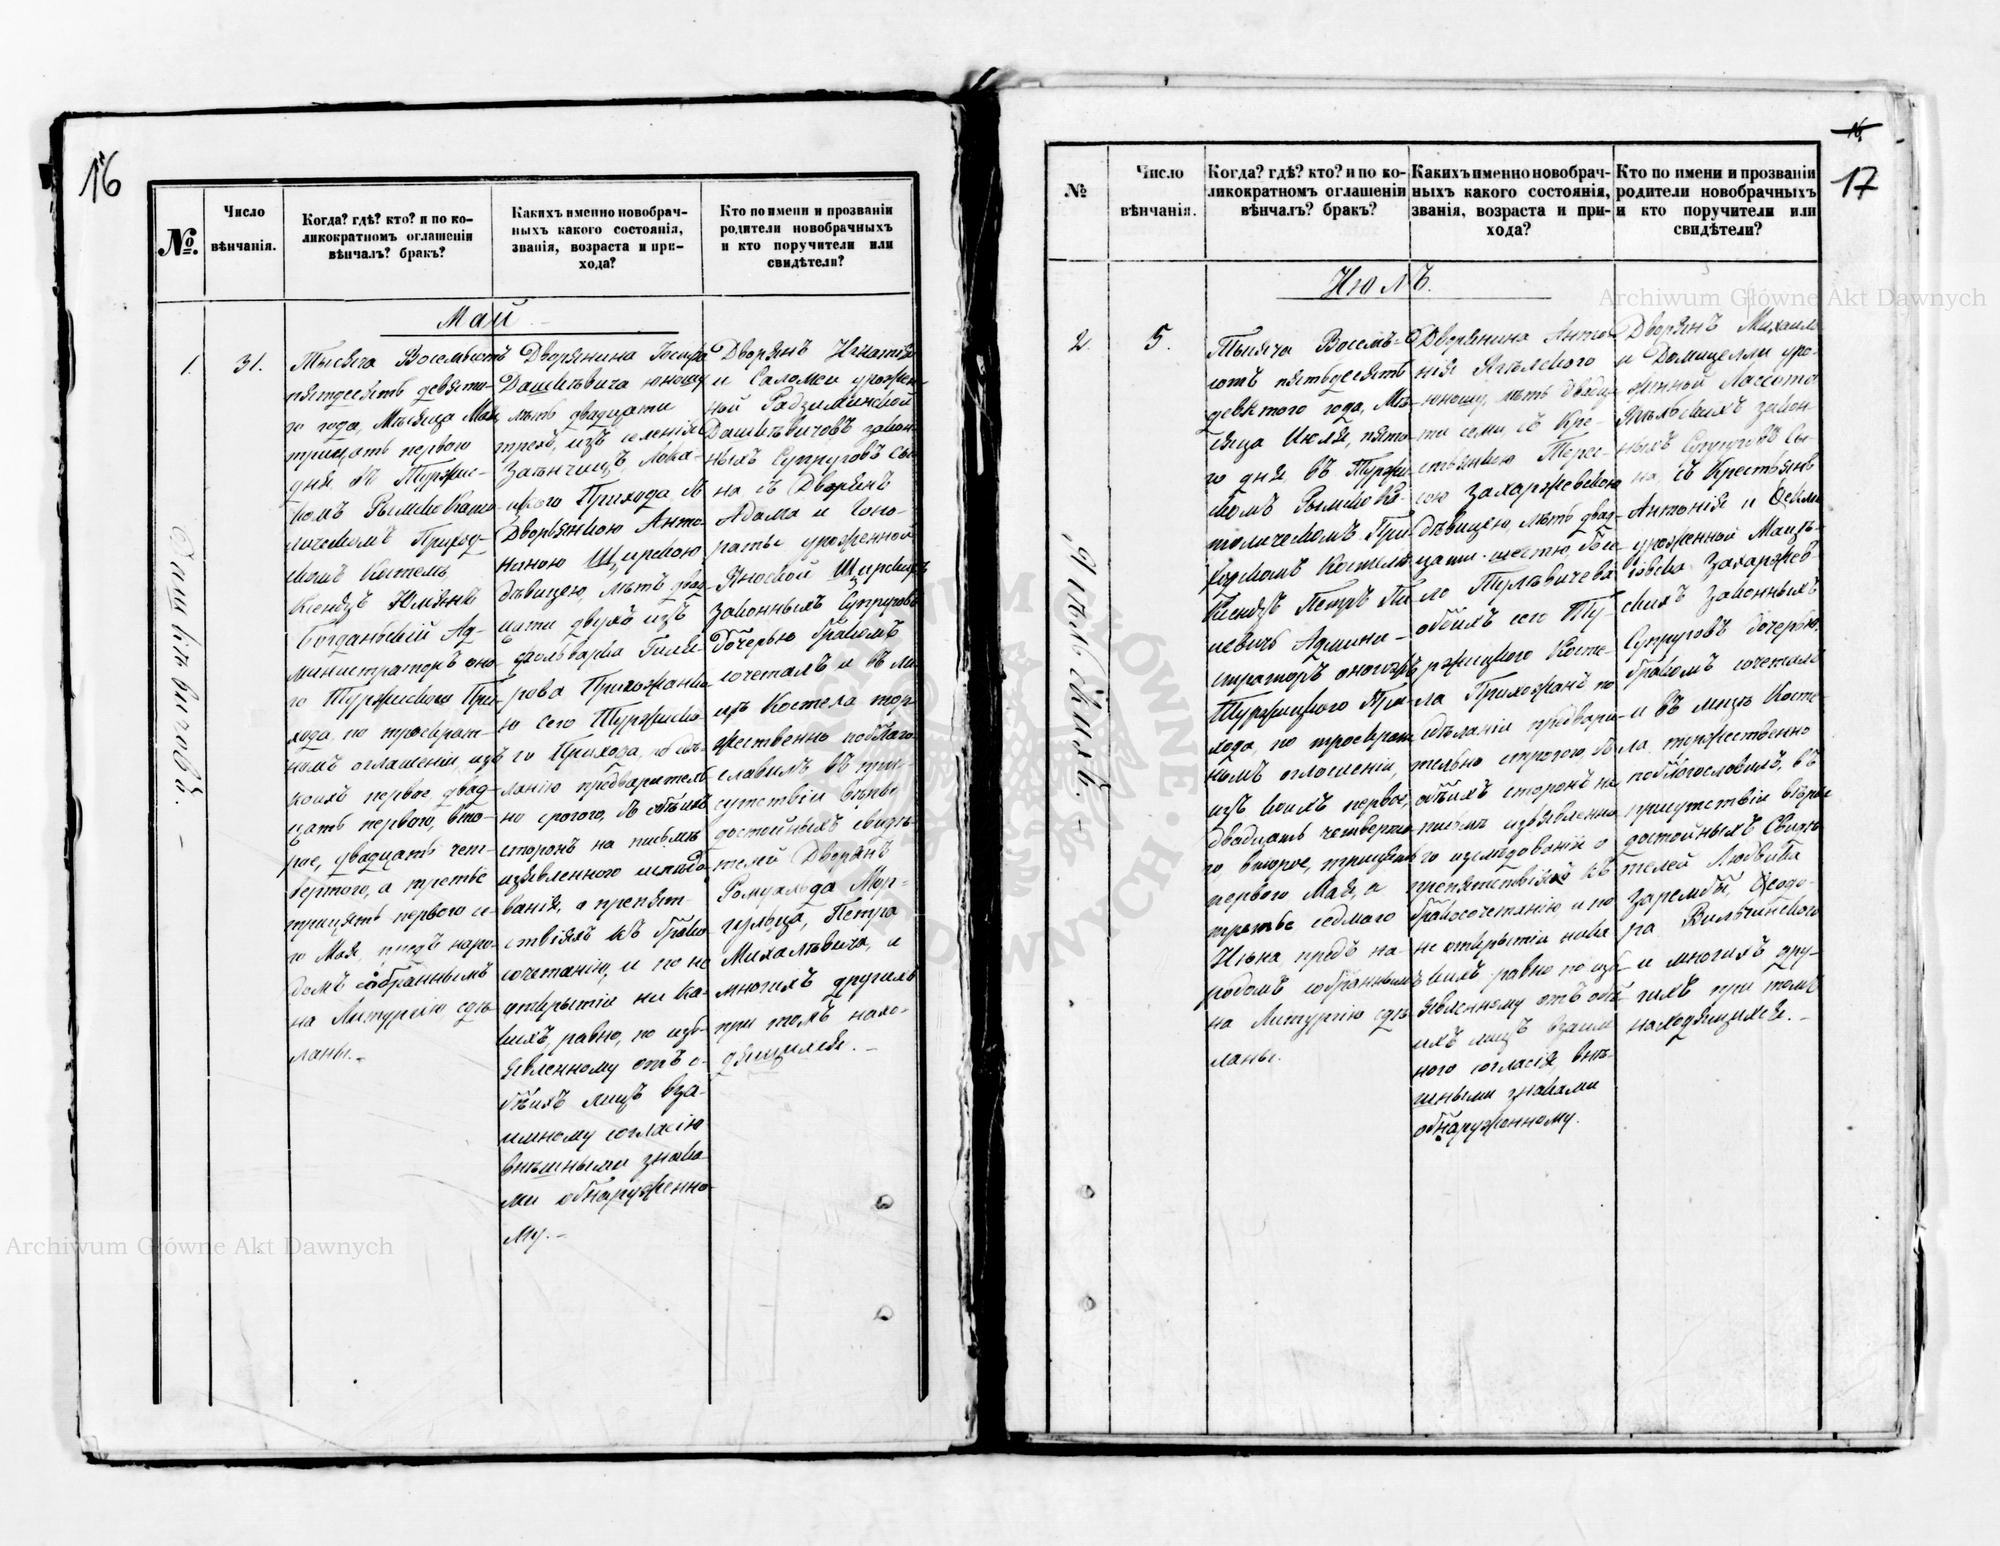 16
№.
Число
вѣнчанія.
Когда? гдѣ? кто? и по ко-
ликократномъ оглашеніи
вѣнчалъ? бракъ?
Какихъ именно новобрач-
ныхъ какого состоянія,
званія, возраста и при-
хода?
Кто по имени и прозванія
родители новобрачныхъ
и кто поручители или
свидѣтели?
Май
1.
31.
Дашкѣвичовъ.
Тысяча Восемьсотъ
пятдесятъ девято-
го года, Мѣсяца Мая
трицать первого
дня, въ Туржис-
комъ Римскокато-
лическомъ Приход-
скомъ Костелѣ,
Ксендзъ Юліянъ
Богданьскій Ад-
министраторъ оно-
го Туржискаго При-
хода, по троекрат-
номъ оглашеніи изъ
коихъ первое двад-
цать первого, вто-
рое, двадцать чет-
вертого, а третье
трицять первого се-
го Мая, предъ наро-
домъ собраннымъ
на Литургію сдѣ-
ланы.
Дворянина Іосифа
Дашкѣвича юношу
лѣтъ двадцати
трехъ, изъ селенія
Загънчицъ, Лока-
цкого Прихода съ
Дворянкою Анто-
ниною Щирскою
дѣвицею, лѣтъ двад-
цати двухъ изъ
фольварка
Прихожанко-
ю сего Туржиско-
го Прихода, по сдѣ-
ланію предваритель-
но срогого, съ обѣихъ
сторонъ на письмѣ
изъявленного изслѣдо-
ванія, о препят-
ствіяхъ къ брако-
сочетанію, и по не
открытіи ни ка-
кихъ, равно, по изъ-
явленному отъ о-
бѣихъ лицъ вза-
имному согласію
внѣшными знака-
ми обнаруженно-
му.
Дворянъ Игнатія
и Саломеи урожен-
ной Радзиминской
Дашкѣвичовъ закон-
ныхъ Супруговъ сы-
на съ Дворянъ
Адама и Гоно-
раты урожденной
Щирскихъ
законныхъ Супруговъ
дочерью бракомъ
сочеталъ и въ ли-
цѣ Костела тор-
жественно поблаго-
славилъ въ при-
сутствіи вѣро
достойныхъ свидѣ-
телей Дворянъ
Ромуальда Мор-
гульца, Петра
Михалѣвича, и
многихъ другихъ
при томъ нахо-
дящихся.
16
17
№
Число
вѣнчанія.
Когда? гдѣ? кто? и по ко-
ликократномъ оглашеніи
вѣнчалъ? бракъ?
Какихъ именно новобрач-
ныхъ какого состоянія,
званія, возраста и при-
хода?
Кто по имени и прозваніи
родители новобрачныхъ
и кто поручители или
свидѣтели?
Июль.
2.
5.
Тысяча Восемь-
сотъ пятьдесятъ
девятого года, Мѣ-
сяца Июля, пято-
го дня, въ Туржи-
скомъ Римскока-
толическомъ При-
ходскомъ Костелѣ
Ксендзъ Петръ
Админи-
страторъ оногожъ
Туржицкого При-
хода, по троекрат-
номъ оглошеніи,
изъ коихъ первое,
двадцать четверта-
го, второе, трицать
первого Мая, а
третье седмаго
Июна предъ на-
родомъ собраннымъ
на Литургію сдѣ-
ланы.
Дворянина Анто-
нія Ягѣлского
юношу, лѣтъ двадц-
ти семи, съ Кре-
стьянкою Терес-
сою Захаржевскою
дѣвицею, лѣтъ двад-
цати шестю,
обоихъ сего Ту-
ржицкого Косте-
ла Прихожанъ по
сдѣланіи предвари-
тельно строгого, съ
обѣихъ сторонъ на
письмѣ изъявленно-
го изслѣдованія о
препятствіяхъ къ
бракосочетанію, и по
не открытіи ника
кихъ равно по изъ-
явленному отъ обѣ-
ихъ лицъ взаим
ного согласія, внѣ-
шными знаками
обнаруженному.
Дворянъ Михаила
и Домицелли уро-
женной Лассота
Ягѣльскихъ закон-
ныхъ Супруговъ Сы-
на, съ Крестьянъ
Антонія и
урожденной
Захаржев-
скихъ законныхъ
Супруговъ дочерью,
бракомъ сочеталъ
и въ лицѣ Косте-
ла торжественно
поблогословилъ, въ
присутствіи вѣро
достойныхъ Свидѣ
телей Людвика
Зарембы, Ѳеодо-
ра Вильчинского
и многихъ дру-
гихъ при томъ
находящихся.
Archiwum Główne Akt Dawnych
Archiwum Główne Akt Dawnych